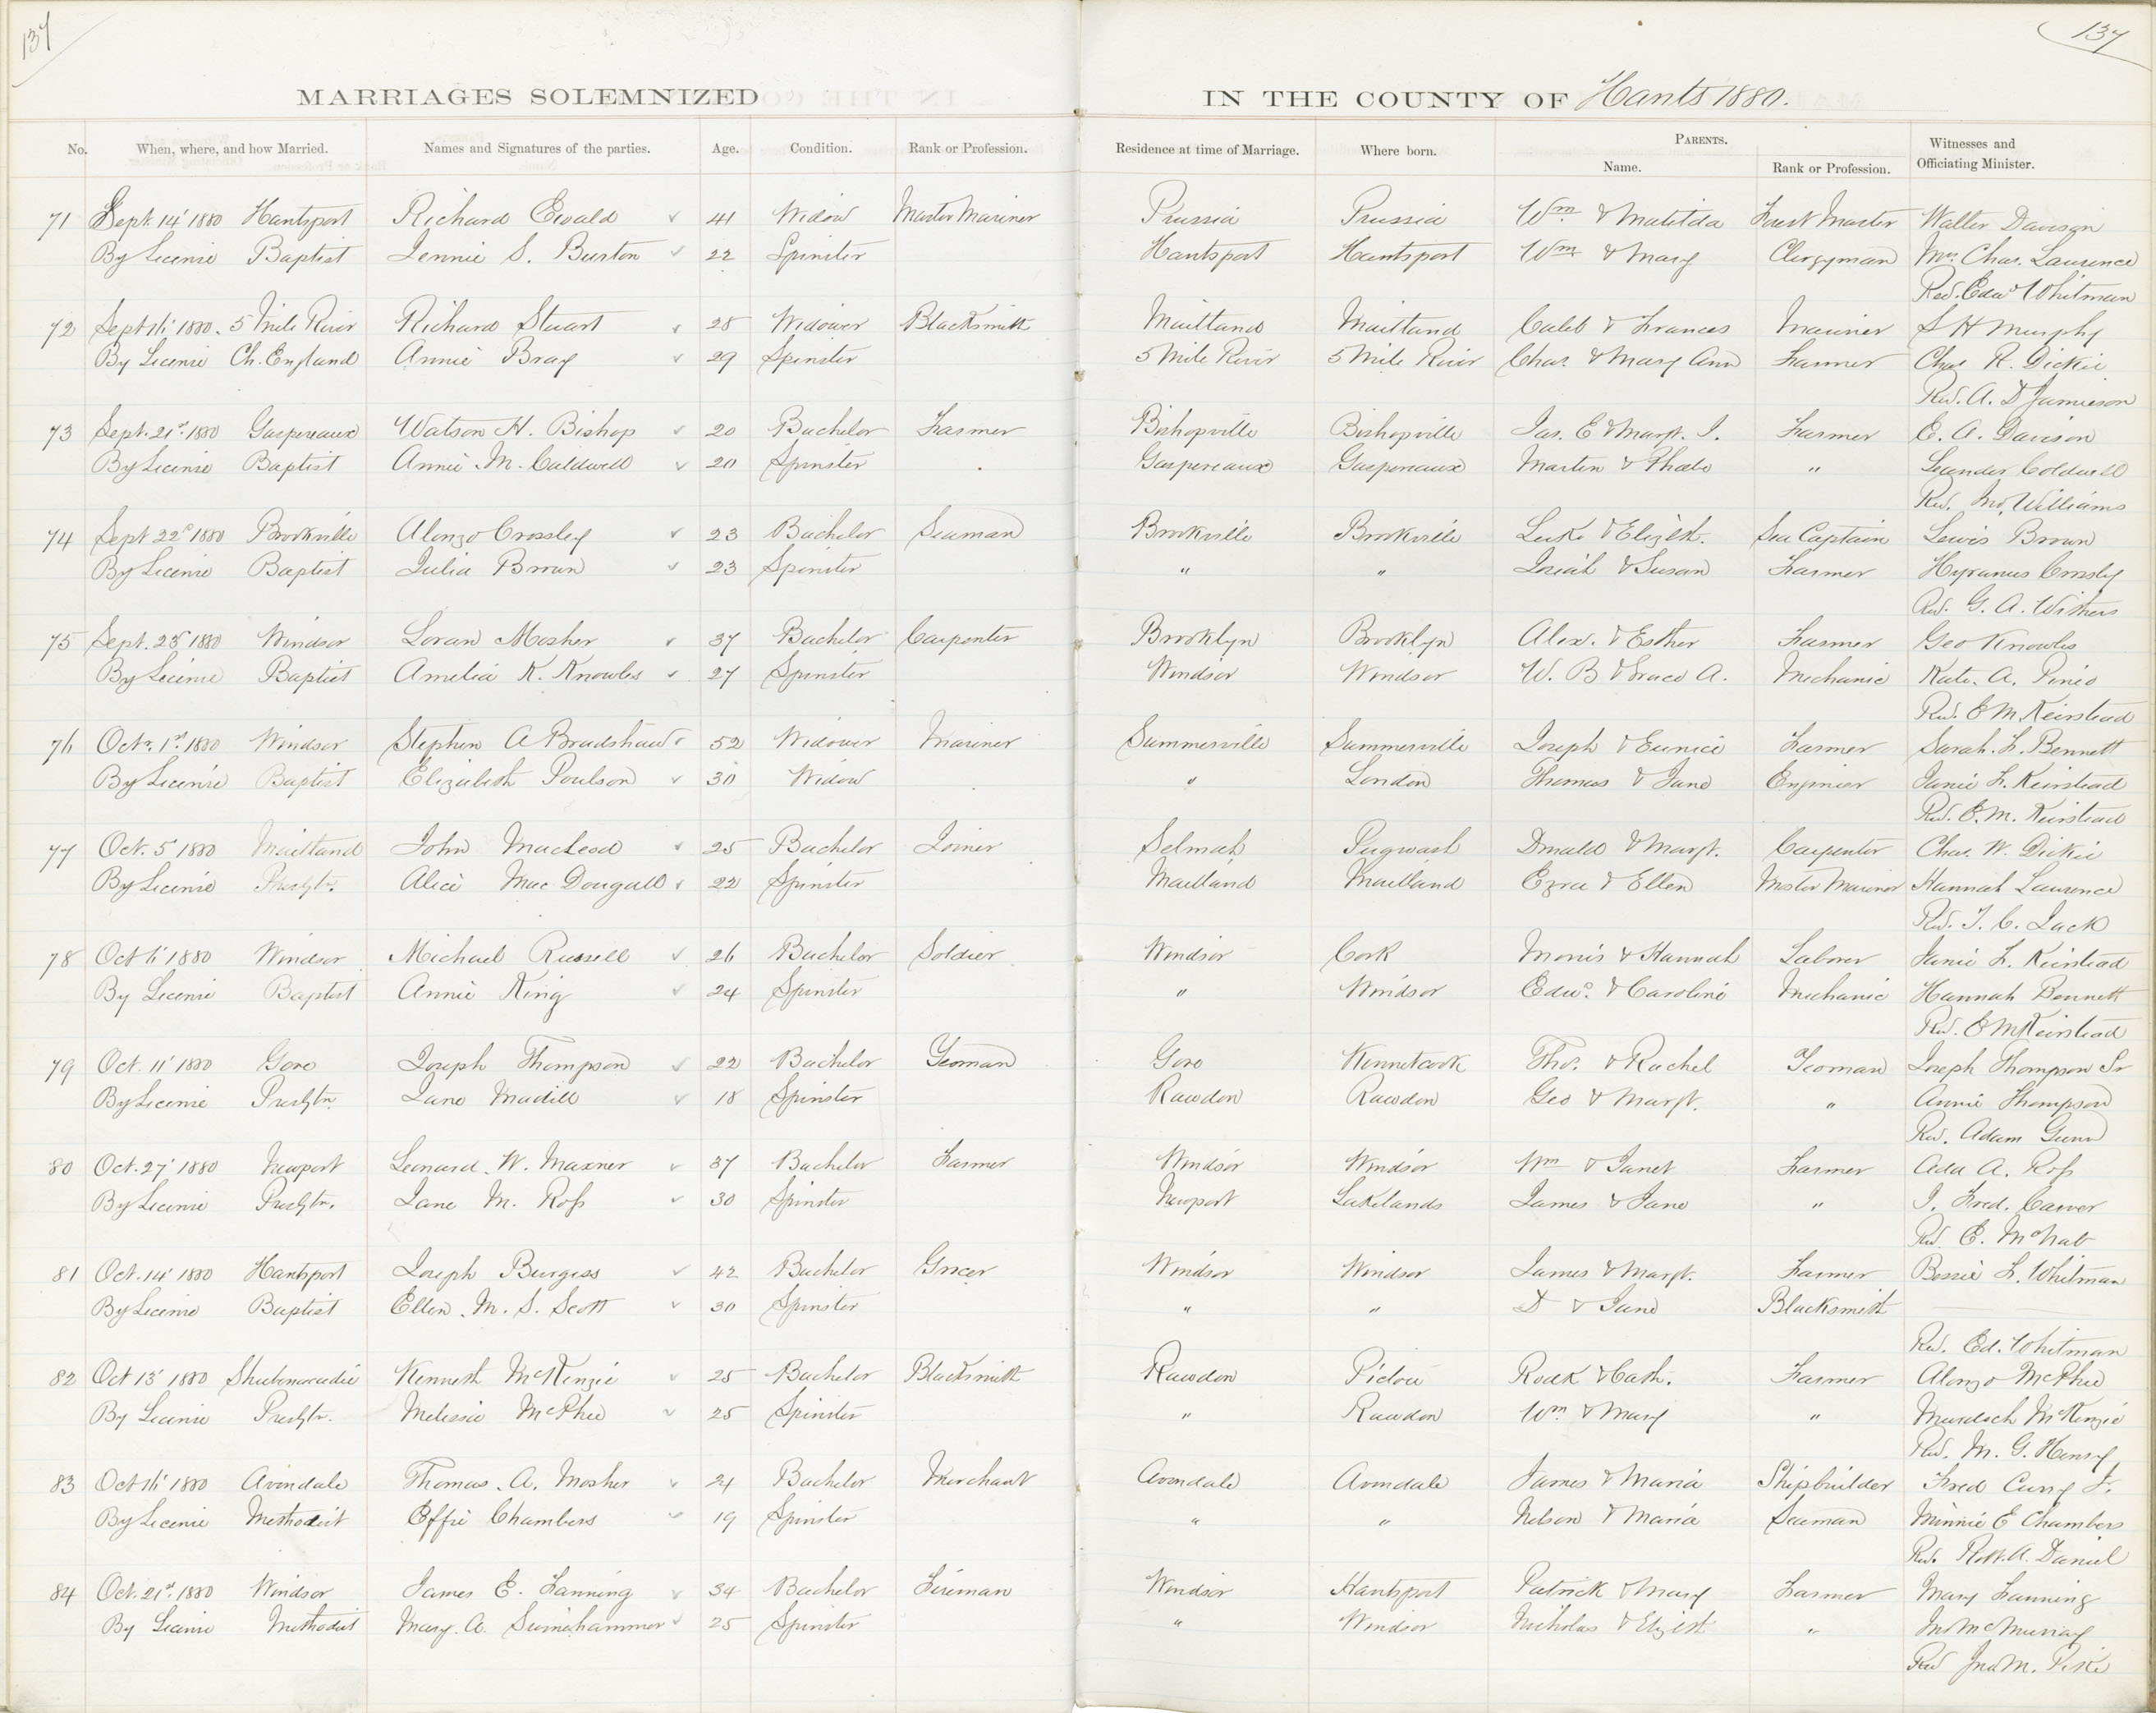 137
137
MARRIAGES SOLEMNIZED IN THE COUNTY OF Hants 1880.
No. When, where, and how Married. Names and Signatures of the parties. Age. Condition. Rank or Profession. Residence at time of Marriage. Where born. PARENTS. Name. Rank or Profession. Witnesses and Officiating Minister.
71 Sept. 14' 1880 Hantsport Richard Ewald 41 Widow Master Mariner Prussia Prussia Wm & Matilda Forest Master Walter Davison
By License Baptist Jennie S. Burton 22 Spinster Hantsport Hantsport Wm & Mary Clergyman Mrs. Chas. Laurence
Rev. Edwd Whitman
72 Sept 16' 1880. 5 Mile River Richard Stuart 28 Widower Blacksmith Maitland Maitland Caleb & Frances Mariner S H Murphy
By License Ch. England Annie Bray 29 Spinster 5 Mile River 5 Mile River Chas. & Mary Ann Farmer Chas R. Dickie
Rev. A. D Jamieson
73 Sept. 21st 1880 Gaspereaux Watson H. Bishop 20 Bachelor Farmer Bishopville Bishopville Jas. E & Margt. J. Farmer E. A. Davison
By License Baptist Annie M. Caldwell 20 Spinster Gaspereaux Gaspereaux Martin & Phoebe " Leander Coldwell
Rev. Jno. Williams
74 Sept 22d 1880 Brookville Alonzo Crossley 23 Bachelor Seaman Brookville Brookville Luke & Elizth. Sea Captain Lewis Brown
By License Baptist Julia Brown 23 Spinster " " Josiah & Susan Farmer Hyranus Crossly
Rev. G. A. Withers
75 Sept. 23d 1880 Windsor Loran Mosher 37 Bachelor Carpenter Brooklyn Brooklyn Alex. & Esther Farmer Geo Knowles
By License Baptist Amelia K. Knowles 27 Spinster Windsor Windsor W. B & Grace A. Mechanic Kate. A. Pineo
Rev. E M Keirstead
76 Octr. 1st 1880 Windsor Stephen A Bradshaw 52 Widower Mariner Summerville Summerville Joseph & Eunice Farmer Sarah. F. Bennett
By License Baptist Elizabeth Poulson 30 Widow " London Thomas & Jane Engineer Janie F. Keirstead
Rev. E. M. Keirstead
77 Oct. 5' 1880 Maitland John MacLeod 25 Bachelor Joiner Selmah Pugwash Donald & Margt. Carpenter Chas. W. Dickie
By License Presbtn. Alice Mac Dougall 22 Spinster Maitland Maitland Ezra & Ellen Master Mariner Hannah Laurence
Rev. T. C. Jack
78 Oct 6' 1880 Windsor Michael Russell 26 Bachelor Soldier Windsor Cork Morris & Hannah Laborer Janie F. Keirstead
By License Baptist Annie King 24 Spinster " Windsor Edwd. & Caroline Mechanic Hannah Bennett
Rev. E M Keirstead
79 Oct. 11' 1880 Gore Joseph Thompson 22 Bachelor Yeoman Gore Kennetcook Thos. & Rachel Yeoman Joseph Thompson Sr
By License Presbtn. Jane Madill 18 Spinster Rawdon Rawdon Geo & Margt. " Annie Thompson
Rev. Adam Gunn
80 Oct. 27' 1880 Newport Leonard. W. Maxner 37 Bachelor Farmer Windsor Windsor Wm & Janet Farmer Ada A. Ross
By License Presbtn. Jane M. Ross 30 Spinster Newport Lakelands James & Jane " J. Fred. Carver
Rev. E. McNab
81 Oct. 14' 1880 Hantsport Joseph Burgess 42 Bachelor Grocer Windsor Windsor James & Margt. Farmer Bessie F. Whitman
By License Baptist Ellen. M. S. Scott 30 Spinster " " D & Jane Blacksmith
Rev. Ed. Whitman
82 Oct 13' 1880 Shubenacadie Kenneth McKenzie 25 Bachelor Blacksmith Rawdon Pictou Rodk & Cath. Farmer Alonzo McPhee
By License Presbtn. Melissa McPhee 25 Spinster " Rawdon Wm & Mary " Murdoch McKenzie
Rev. M. G. Henry
83 Oct 16' 1880 Avondale Thomas. A. Mosher 24 Bachelor Merchant Avondale Avondale James & Maria Shipbuilder Fred Curry Jr.
By License Methodist Effie Chambers 19 Spinster " " Nelson & Maria Seaman Minnie E Chambers
Rev. Robt. A. Daniel
84 Oct. 21st 1880 Windsor James E. Fanning 34 Bachelor Fireman Windsor Hantsport Patrick & Mary Farmer Mary Fanning
By License Methodist Mary. A. 25 Spinster " Windsor Nicholas & Elizth " McMurray
Rev Jno M. Pike